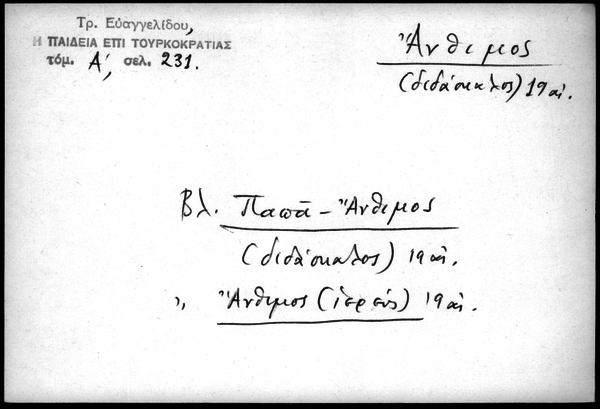 Τρ. Εὐαγγελίδου,
Η ΠΑΙΔΕΙΑ ΕΠΙ ΤΟΥΡΚΟΚΡΑΤΙΑΣ
τόμ. Α', σελ. 231.
Ἄνθιμος
(διδάσκαλος) 19 αἰ.
Βλ. Παπᾶ-Ἄνθιμος
(διδάσκαλος) 19 αἰ.
,, Ἄνθιμος (ἱερεύς) 19 αἰ.